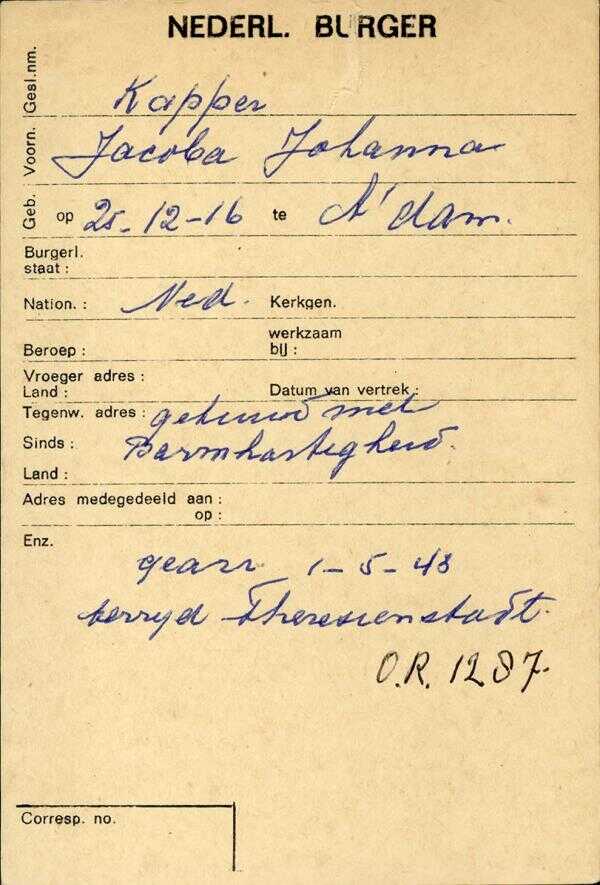 NEDERL. BURGER
Gesl.nm. Kapper
Voorn. Jacoba Johanna
Geb. op 25-12-16 te A'dam.
Burgerl.
staat :
Nation. : Ned. Kerkgen.
werkzaam
Beroep : bij :
Vroeger adres :
Land : Datum van vertrek :
Tegenw. adres : gehuwd met
Sinds : Barmhartigheid.
Land :
Adres medegedeeld aan :
op :
Enz.
gearr 1-5-43
bevryd Theresienstadt.
O.R. 1287.
Corresp. no.